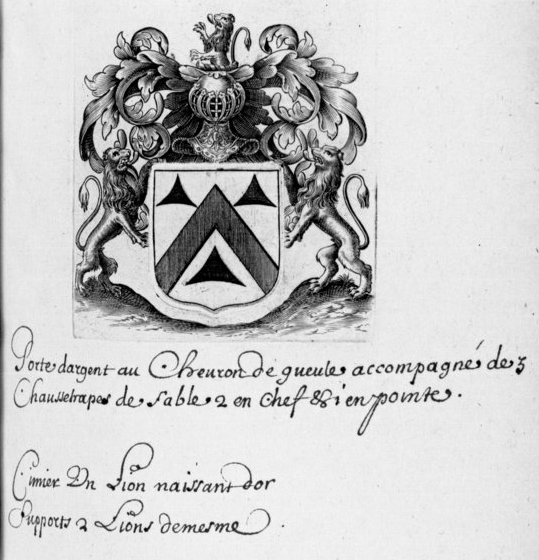 Porte dargent au Cheuron de gueule accompagné de 3
Chaussetrapes de sable 2 en chef & 1 en pointe.
Cimier Un Lion naissant dor
Supports 2 Lions demesme.